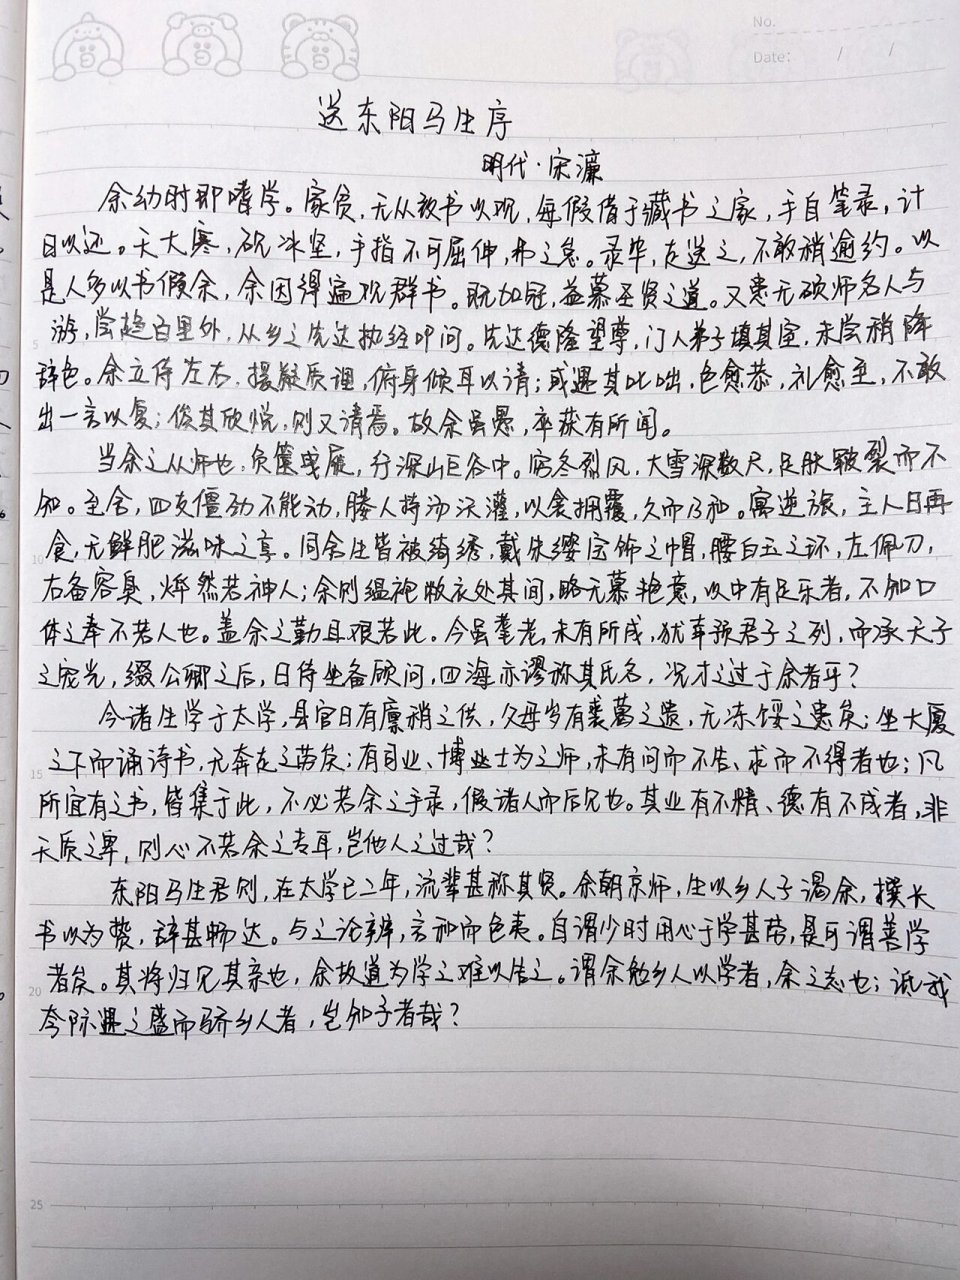 No.
Date: / /
送东阳马生序
明代·宋濂
余幼时即嗜学。家贫,无从致书以观,每假借于藏书之家,手自笔录,计
日以还。天大寒,砚冰坚,手指不可屈伸,弗之怠。录毕,走送之,不敢稍逾约。以
是人多以书假余,余因得遍观群书。既加冠,益慕圣贤之道。又患无硕师名人与
游,尝趋百里外,从乡之先达执经叩问。先达德隆望尊,门人弟子填其室,未尝稍降
辞色。余立侍左右,援疑质理,俯身倾耳以请;或遇其叱咄,色愈恭,礼愈至,不敢
出一言以复;俟其欣悦,则又请焉。故余虽愚,卒获有所闻。
当余之从师也,负箧曳屣,行深山巨谷中。穷冬烈风,大雪深数尺,足肤皲裂而不
知。至舍,四支僵劲不能动,媵人持汤沃灌,以衾拥覆,久而乃和。寓逆旅,主人日再
食,无鲜肥滋味之享。同舍生皆被绮绣,戴朱缨宝饰之帽,腰白玉之环,左佩刀,
右备容臭,烨然若神人;余则缊袍敝衣处其间,略无慕艳意,以中有足乐者,不知口
体之奉不若人也。盖余之勤且艰若此。今虽耄老,未有所成,犹幸预君子之列,而承天子
之宠光,缀公卿之后,日侍坐备顾问,四海亦谬称其氏名,况才之过于余者乎?
今诸生学于太学,县官日有廪稍之供,父母岁有裘葛之遗,无冻馁之患矣;坐大厦
之下而诵诗书,无奔走之劳矣;有司业、博士为之师,未有问而不告、求而不得者也;凡
所宜有之书,皆集于此,不必若余之手录,假诸人而后见也。其业有不精、德有不成者,非
天质之卑,则心不若余之专耳,岂他人之过哉?
东阳马生君则,在太学已二年,流辈甚称其贤。余朝京师,生以乡人子谒余,撰长
书以为贽,辞甚畅达。与之论辨,言和而色夷。自谓少时用心于学甚劳,是可谓善学
者矣。其将归见其亲也,余故道为学之难以告之。谓余勉乡人以学者,余之志也;诋我
夸际遇之盛而骄乡人者,岂知予者哉?
5
10
15
20
25